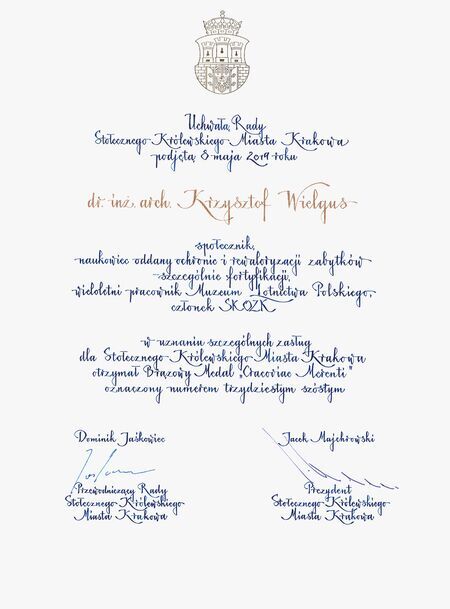 Uchwałą Rady
Stołecznego Królewskiego Miasta Krakowa
podjętą 8 maja 2019 roku
dr. inż. arch. Krzysztof Wielgus
społecznik,
naukowiec oddany ochronie i rewaloryzacji zabytków
szczególnie fortyfikacji,
wieloletni pracownik Muzeum Lotnictwa Polskiego,
członek SKOZK
w uznaniu szczególnych zasług
dla Stołecznego Królewskiego Miasta Krakowa
otrzymał Brązowy Medal „Cracoviae Merenti"
oznaczony numerem trzydziestym szóstym
Dominik Jaśkowiec
Przewodniczący Rady
Stołecznego Królewskiego
Miasta Krakowa
Jacek Majchrowski
Prezydent
Stołecznego Królewskiego
Miasta Krakowa